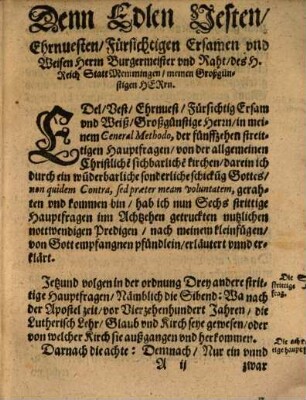 Denn Edlen Vesten/
Ehrnuesten/ Fürsichtigen Ersamen vnd
Weisen Herrn Burgermeister vnd Raht/ des H.
Reich Statt Memmingen/ meinen Großgün-
stigen HERrn.
EDel/ Vest/ Ehrnuest/ Fürsichtig Ersam
vnd Weiß/ Großgünstige Herrn/ in mei-
nem General Methodo, der fünffzehen streit-
tigen Hauptfragen/ von der allgemeinen
Christlichē sichbarlichē kirchen/ darein ich
durch ein wüderbarliche sonderliche schickūg Gottes/
non quidem Contra, sed præter meam voluntatem, gerah-
ten vnd kommen bin/ hab ich nun Sechs strittige
Hauptfragen inn Achtzehen getruckten nutzlichen
nottwendigen Predigen/ nach meinem kleinfügen/
von Gott empfangnen pfündlein/ erläutert vnnd er-
klärt.
Jetzund volgen in der ordnung Drey andere strit-
tige Hauptfragen/ Nämblich die Sibend: Wa nach
der Apostel zeit/ vor Vierzehenhundert Jahren/ die
Lutherisch Lehr/ Glaub vnd Kirch seye gewesen/ oder
von welcher Kirch sie außgangen vnd herkommen.
Darnach die achte: Demnach/ Nur ein vnnd
A ij zwar
Die
strittige